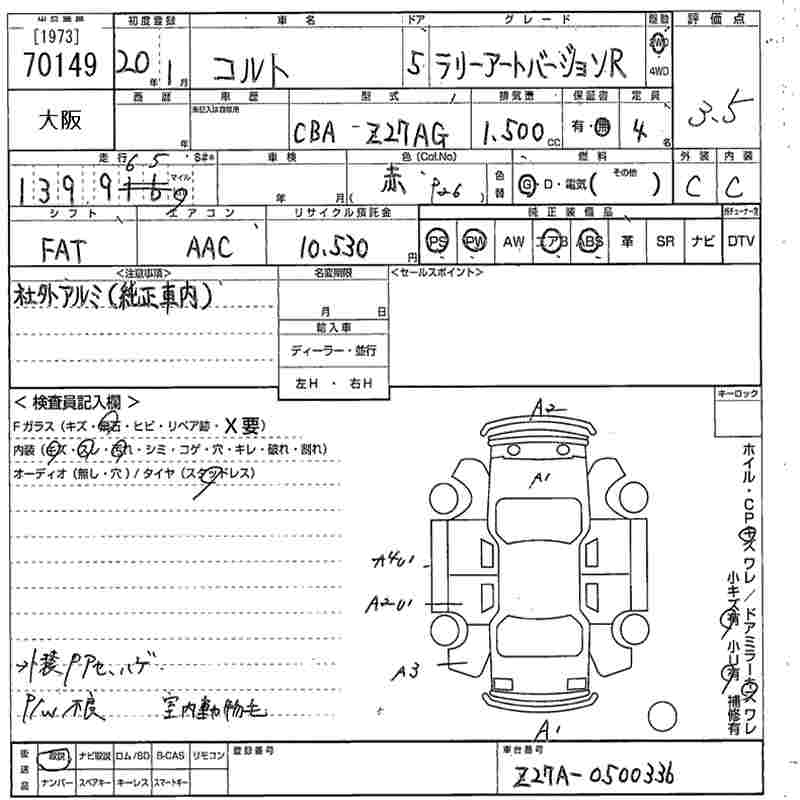 出品番号 初度登録 車名 ドア グレード 駆動 評価点
[1973]
70149 20年 1月 コルト 5 ラリーアートバージョンR 2WD 4WD 3.5
大阪 西暦 年 車歴 未記入は自家用 型式 CBA-Z27AG 排気量 1.500cc 保証書 有・無 定員 4名
走行 車検 色(Col.No) 燃料 外装 内装
139,9 65 マイル km 年 月 赤 (P26) 色替 G・D・電気(その他) C C
シフト エアコン リサイクル預託金 純正装備品
FAT AAC 10.530円 PS PW AW エアB ABS 革 SR ナビ DTV
<注意事項> 名変期限 <セールスポイント>
社外アルミ(純正車内)
月 日
輸入車
ディーラー・並行
左H・右H
<検査員記入欄> キーロック
Fガラス(キズ・飛石・ヒビ・リペア跡・X要)
内装(キズ・スレ・汚れ・シミ・コゲ・穴・キレ・破れ・割れ)
オーディオ(無し・穴)/タイヤ(スタッドレス)
A2
A1
A4U1
A2U1
A3
A1
ホイル・CPキズワレ/ドアミラーキズワレ
小キズ有 小U有 補修有
外装PPセ、ハゲ
P/W不良 室内動物毛
後送品 取説 ナビ取説 ロム/SD B-CAS リモコン 登録番号 車台番号
ナンバー スペアキー キーレス スマートキー Z27A-0500336